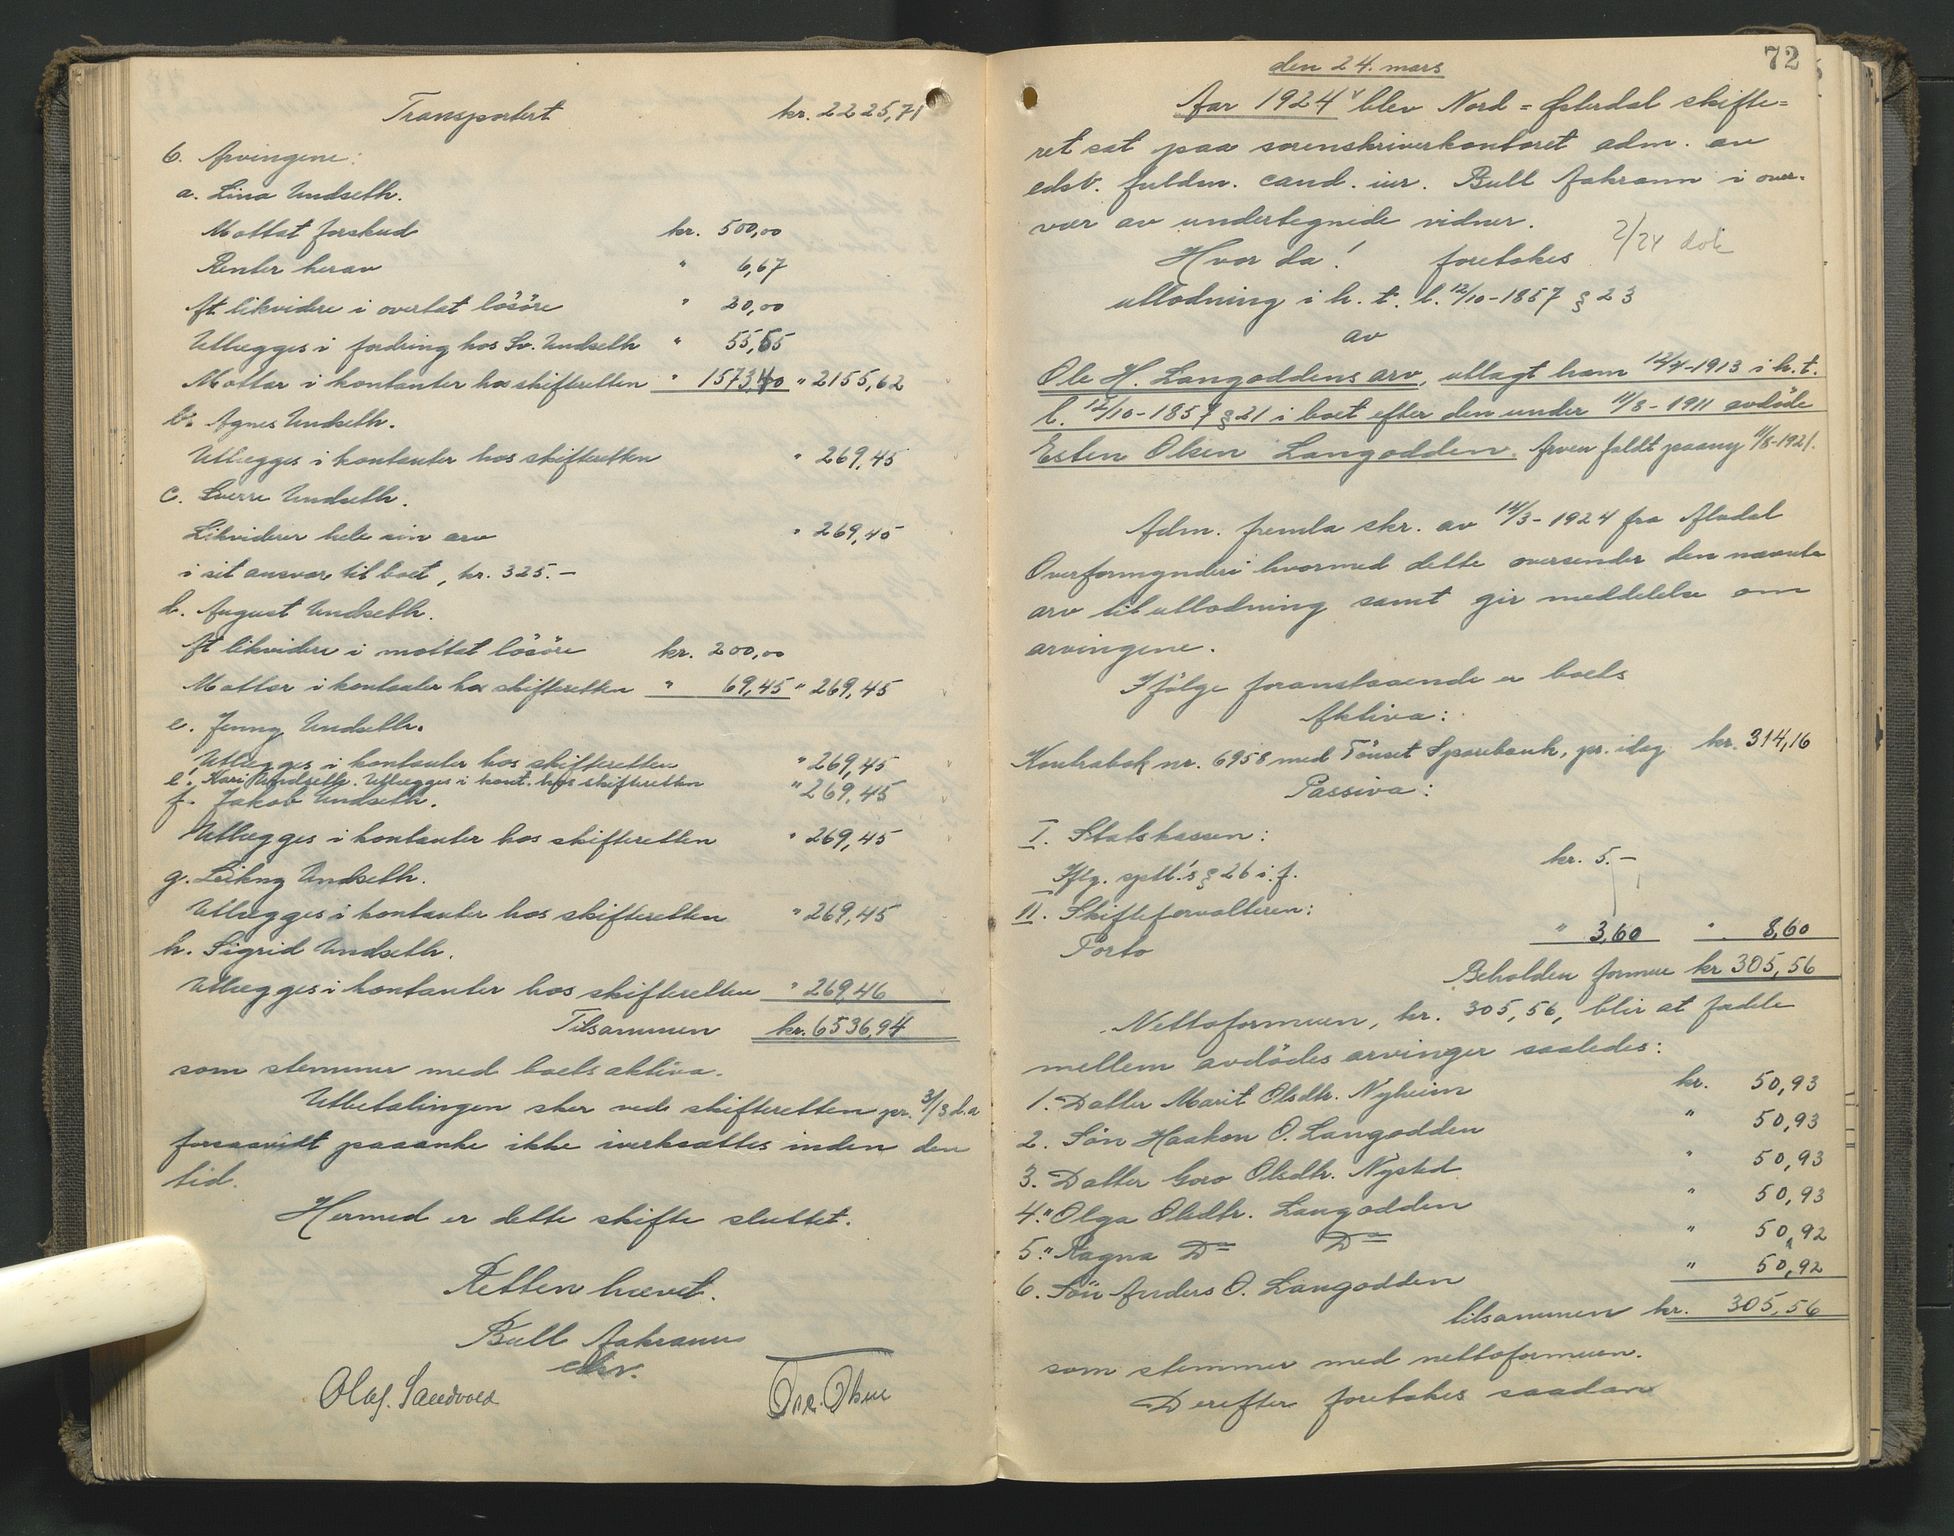 Transportert kr. 2225,71
6. Arvingene:
a. Lina Undseth.
Mottat forskud kr. 500,00
Renter herav " 6,67
At likvidere i overtat lösöre " 20,00
Utlægges i fordring hos Sv. Undseth " 55,55
Mottar i kontanter hos skifteretten " 1573,40 " 2155,62
b. Agnes Undseth.
Utlægges i kontanter hos skifteretten " 269,45
c. Sverre Undseth.
Likviderer hele sin arv " 269,45
i sit ansvar til boet, kr. 325.-
d. August Undseth.
At likvidere i mottat lösöre kr. 200,00
Mottar i kontanter hos skifteretten " 69,45 " 269,45
e. Jenny Undseth.
Utlægges i kontanter hos skifteretten " 269,45
e'. Kari Undseth. Utlægges i kont. hos skifteretten " 269,45
f. Jakob Undseth.
Utlægges i kontanter hos skifteretten " 269,45
g. Leikny Undseth.
Utlægges i kontanter hos skifteretten " 269,45
h. Sigrid Undseth.
Utlægges i kontanter hos skifteretten " 269,46
Tilsammen kr. 6536,94
som stemmer med boets aktiva.
Utbetalingen sker ved skifteretten pr. 31/3 d.a
forsaavidt paaanke ikke iverksættes inden den
tid.
Hermed er dette skifte sluttet.
Retten hævet.
Bull Aakrann
edsv.
Olaf. Sandvold Ole. Olsen
72
den 24. mars
Aar 1924 v blev Nord=Østerdal skifte=
ret sat paa sorenskriverkontoret adm. av
edsv. fuldm. cand. iur. Bull Aakrann i over-
vær av undertegnede vidner.
Hvor da! foretokes 2/24 dok
utlodning i h. t. l. 12/10-1857 § 23
av
Ole H. Langoddens arv, utlagt ham 12/4-1913 i h. t.
l. 12/10-1857 § 21 i boet efter den under 11/8-1911 avdöde
Esten Olsen Langodden. Arven faldt paany 11/8-1921.
Adm. fremla skr. av 14/3-1924 fra Alvdal
Overformynderi hvormed dette oversender den nævnte
arv til utlodning samt gir meddelelse om
arvingene.
Ifölge foranstaaende er boets
Aktiva:
Kontrabok nr. 6958 med Tönset Sparebank, pr. idag kr. 314,16
Passiva:
I. Statskassen:
Iflg. sptl.'s § 26 i. f. kr. 5.-
II. Skifteforvalteren:
Porto " 3,60 " 8,60
Beholden formue kr 305,56
Nettoformuen, kr. 305,56, blir at fordele
mellem avdödes arvinger saaledes:
1. Datter Marit Olsdtr. Nyheim kr. 50,93
2. Sön Haakon O. Langodden " 50,93
3. Datter Goro Olsdtr. Nysted " 50,93
4. " Olga Olsdtr. Langodden " 50,93
5. " Ragna Do Do " 50,92
6. Sön Anders O. Langodden " 50,92
tilsammen kr. 305,56
som stemmer med nettoformuen.
Derefter foretokes saadan